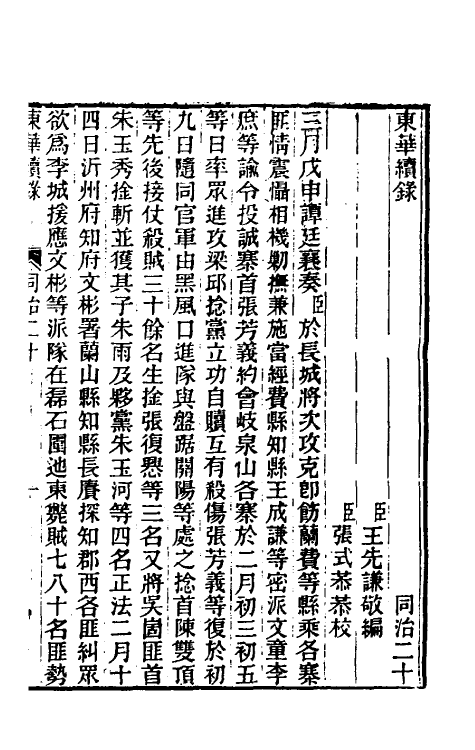 東華續錄　同治二十
臣王先謙敬編
臣張式恭恭校
三月戊申譚廷襄奏臣於長城將次攻克卽飭蘭費等縣乘各寨
匪情震懾相機勦撫兼施當經費縣知縣王成謙等密派文童李
庶等諭令投誠寨首張芳義約會岐泉山各寨於二月初三初五
等日率眾進攻梁邱捻黨立功自贖互有殺傷張芳義等復於初
九日隨同官軍由黑風口進隊與盤踞開陽等處之捻首陳雙頂
等先後接仗殺賊三十餘名生捦張復懸等三名又將吳固匪首
朱玉秀捦斬並獲其子朱雨及夥黨朱玉河等四名正法二月十
四日沂州府知府文彬署蘭山縣知縣長賡探知郡西各匪糾眾
欲爲李城援應文彬等派隊在磊石圍迆東斃賊七八十名匪勢
東華續錄　同治二十　一